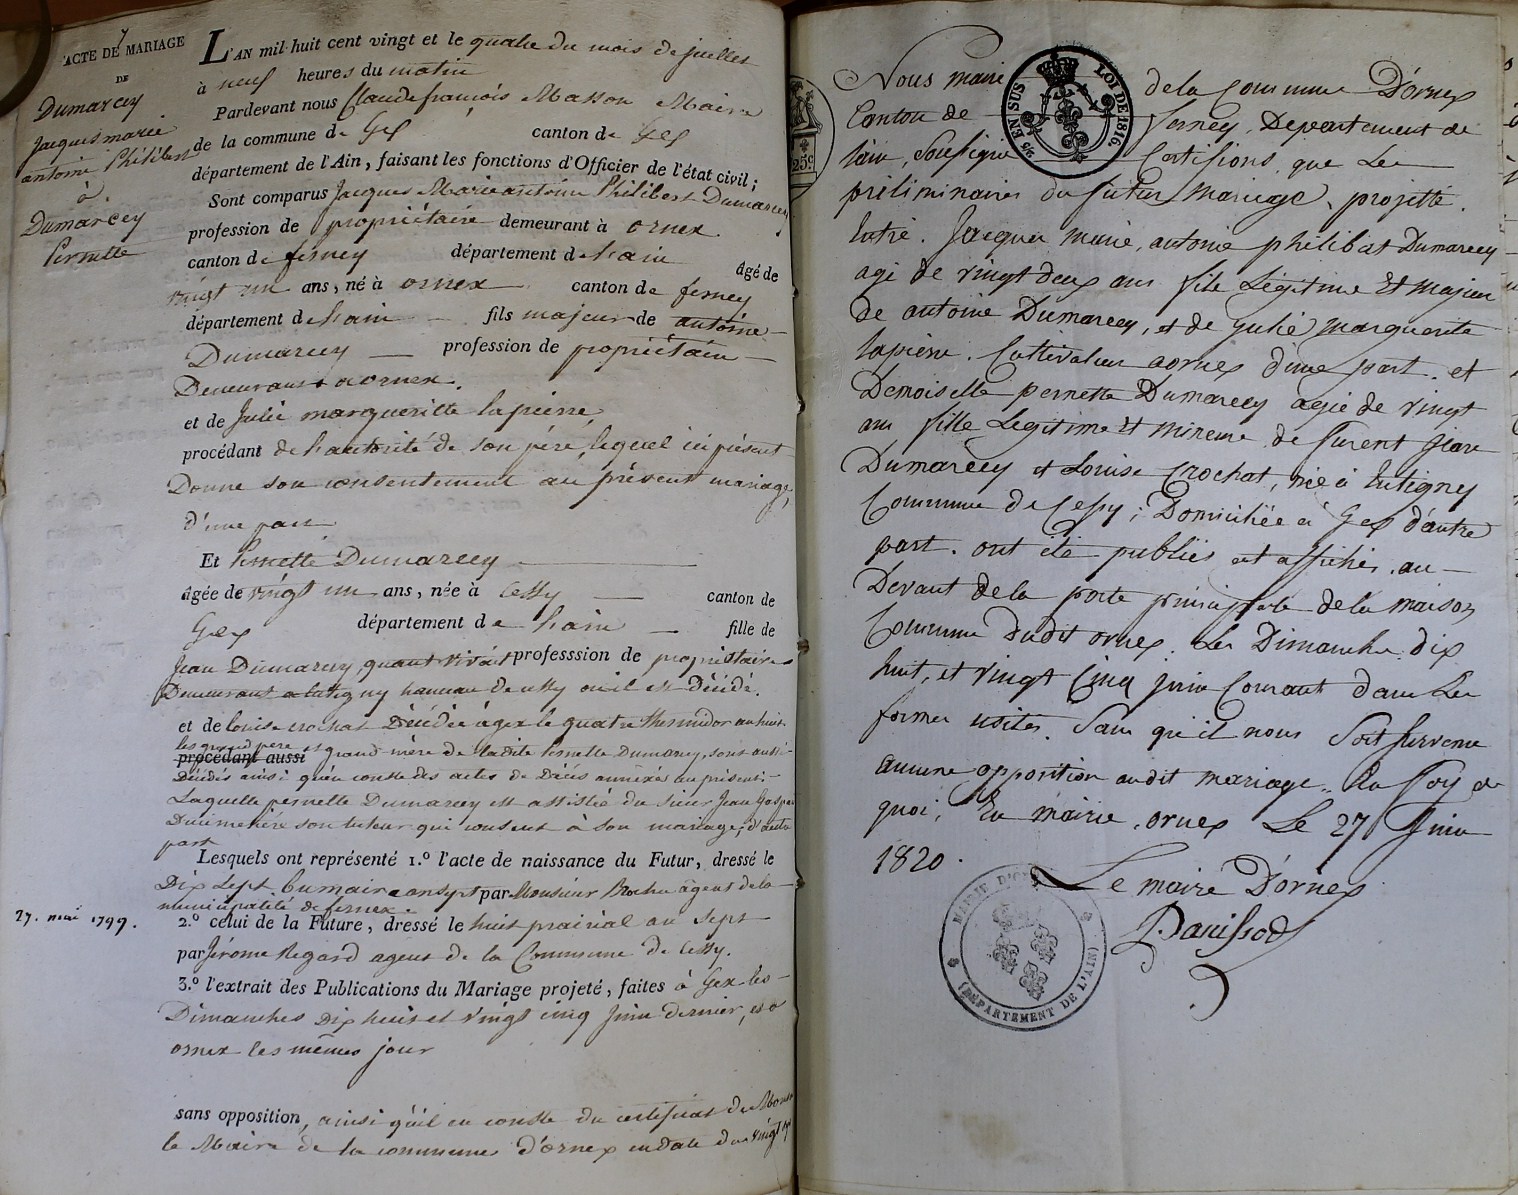 7
ACTE DE MARIAGE
DE
Dumarcey
Jacques marie
antoine Philibert
à
Dumarcey
Pernette
L'AN mil huit cent vingt et le quatre du mois de juillet
à neuf heures du matin
Pardevant nous Claude françois Masson Maire
de la commune de Gex canton de Gex
département de l'Ain, faisant les fonctions d'Officier de l'état civil;
Sont comparus Jacques Marie antoine Philibert Dumarcey
profession de propriétaire demeurant à ornex
canton de ferney département de L'ain âgé de
vingt un ans, né à ornex canton de ferney
département de L'ain fils majeur de antoine
Dumarcey profession de propriétaire
Demeurant a ornex.
et de Julie margueritte lapierre,
procédant de L'autorité de son père, lequel ici présent
Donne son consentement au présent mariage,
d'une part
Et Pernette Dumarcey
âgée de vingt un ans, née à Cessy canton de
Gex département de L'ain fille de
Jean Dumarcey, quant vivait professsion de propriétaire
Demeurant a tutigny hameau de cessy ou il est Décédé.
et de louise crochat Décédée à gex le quatre thermidor an huit
les grand père et grand mère de ladite Pernette Dumarcey, sont aussi
procédant aussi
Décédés ainsi qu'en conste des actes de Décès annexés au présent
Laquelle pernette Dumarcey est assistée du sieur Jean Gaspar
son tuteur qui consent à son mariage, d'autre
part
Lesquels ont représenté 1.º l'acte de naissance du Futur, dressé le
Dix Sept. brumaire an sept par Monsieur Rochu agent de la
municipalité de fernex.
27. mai 1799.
2.º celui de la Future, dressé le huit prairial an sept
par Jérome Regard agent de la Commune de Cessy.
3.º l'extrait des Publications du Mariage projeté, faites à Gex les
Dimanches Dix huit et vingt cinq Juin dernier, et a
ornex les mêmes jour
sans opposition, ainsi qu'il en conste du certificat de Monsr
le Maire de la commune d'ornex en date du vingt
25c
EN SUS
LOI DE 1816
Nous maire de la Commune D'ornex
Canton de ferney, Departement de
l'ain, Soussigné Certifions que Les
préliminaires du futur mariage, projetté.
Entre. Jacques marie, antoine philibert Dumarcey
agé de vingt deux ans fils Légitime Et majeur
de antoine Dumarcey, et de julie marguerite
lapierre. Cultivateur a ornex d'une part. et
Demoiselle pernette Dumarcey agée de vingt
ans fille Légitime Et mineure de furent jean
Dumarcey et Louise Crochat, née à tutigny
Commune de Cessy; Domiciliée a Gex d'autre
part. ont été publiés et affichés. au
Devant de la porte principale de la maison
Commune dudit ornex. Les Dimanche dix
huit, et vingt Cinq juin Courant dans Les
formes usités. Sans qu'il nous Soit survenu
aucune opposition audit mariage. En foy de
quoi; En mairie, ornex Le 27 Juin
1820.
Le maire D'ornex
Panissod
MAIRIE D'OR
(DÉPARTEMENT DE L'AIN)